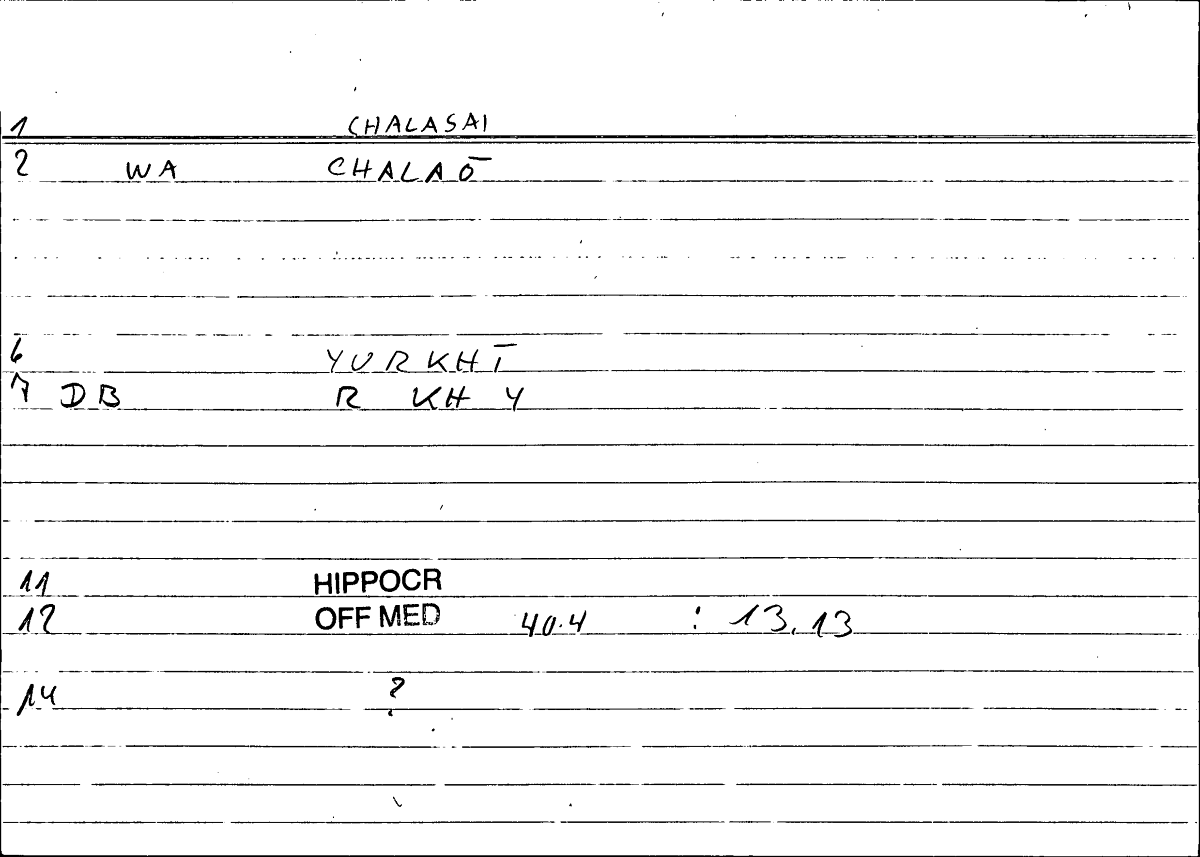 1 CHALASAI
2 WA CHALAŌ
6 YURKHĪ
7 DB R KH Y
11 HIPPOCR
12 OFF MED 40.4 : 13,13
14 ?